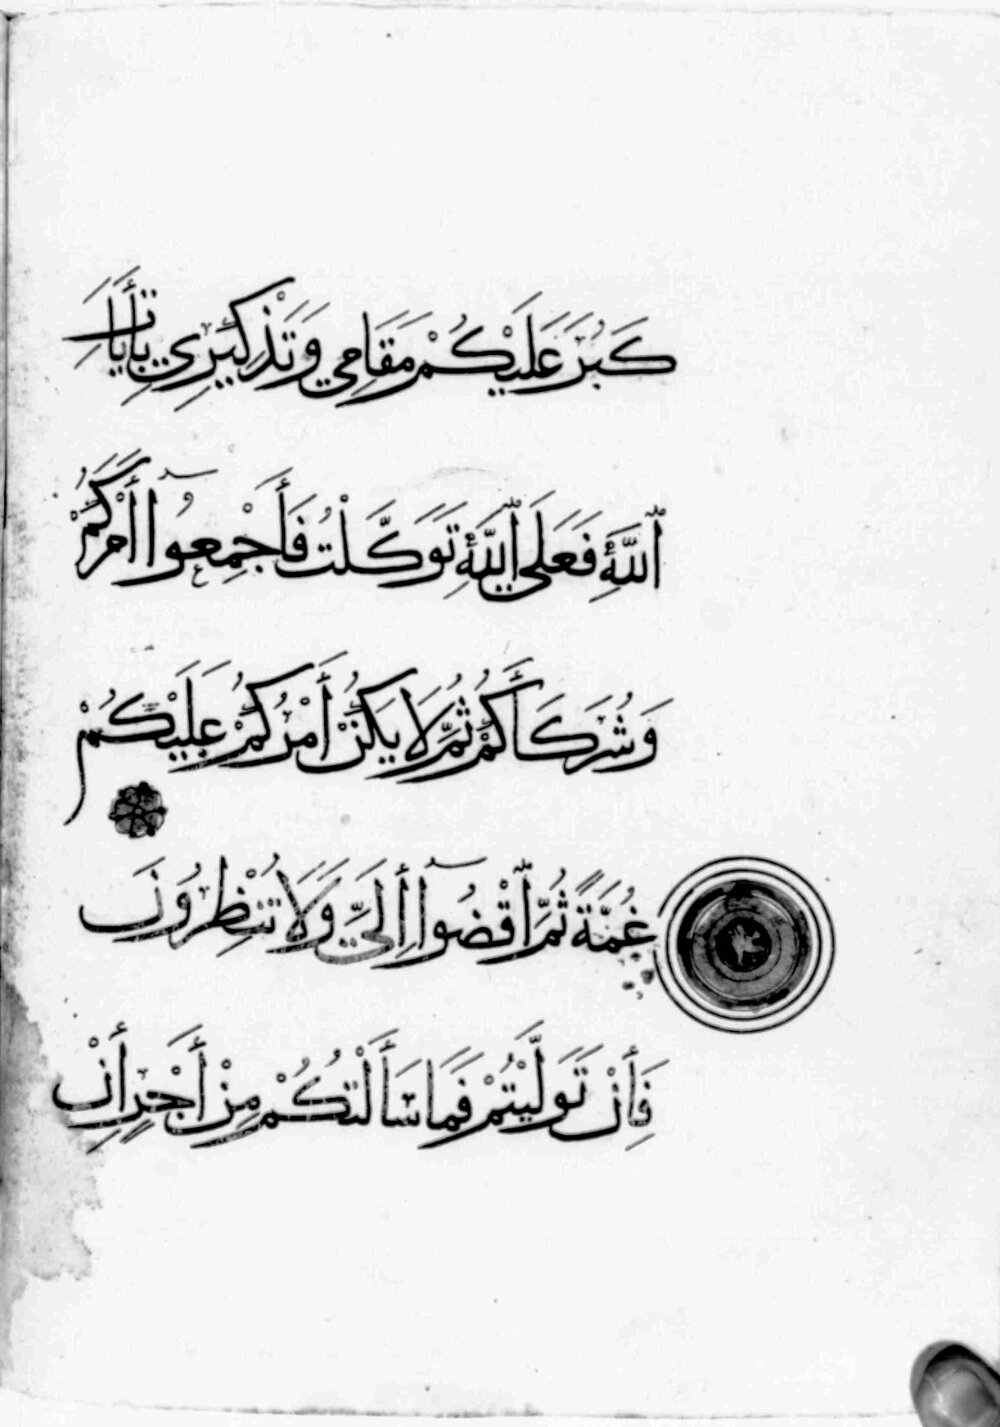 كَبُرَ عَلَيْكُمْ مَقَامِي وَتَذْكِيرِي بِأَيَاتِ
ٱللَّهِ فَعَلَى ٱللَّهِ تَوَكَّلْتُ فَأَجْمِعُوٓا أَمْرَكُمْ
وَشُرَكَأَكُمْ ثُمَّ لَا يَكُنْ أَمْرُكُمْ عَلَيْكُمْ
غُمَّةً ثُمَّ ٱقْضُوٓا إِلَيَّ وَلَا تُنْظِرُونَ
فَأِنْ تَوَلَّيْتُمْ فَمَا سَأَلْتُكُمْ مِنْ أَجْرٍ أِنْ